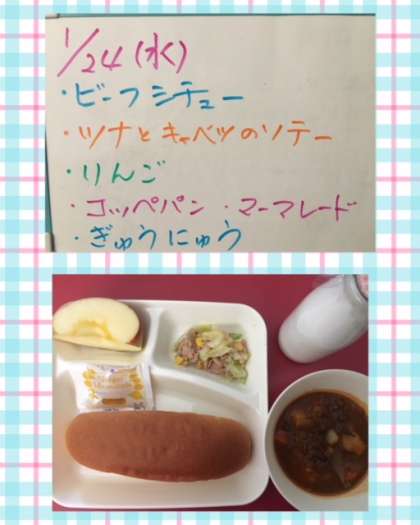 1/24(水)
・ビーフシチュー
・ツナとキャベツのソテー
・りんご
・コッペパン ・マーマレード
・ぎゅうにゅう